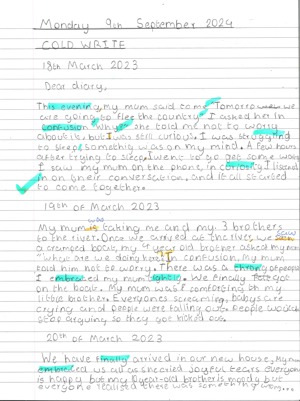 Monday 9th September 2024
COLD WRITE
18th March 2023
Dear diary,
This evening, my mum said to me "Tomorrow we
are going to flee the country". I asked her in
confusion "Why?" she told me not to worry
about it, but I was still curious. I was struggling
to sleep, something was on my mind. A few hours
after trying to sleep, I went to go get some water
I saw my mum on the phone, in curiosity I listened
in on their conversation, and it all started
to come together.
19th of March 2023
was
My mum is taking me and my 3 brothers
to the river. Once we arrived at the river, we saw
a cramped boat, my 4 year old brother asked my mum
"What are we doing here" in confusion, My mum
told him not to worry. There was a throng of people
I embraced my mum again. We finally got
on the boat. My mum was comforting my
little brother. Everyones screaming, babys are
crying and people were falling out. People would
stop arguing so they got kicked out.
20th of March 2023
We have finally arrived in our new house, My mum
embraced us all as she cried joyful tears everyone
is happy but my 10 year-old brother is moody but
everyone realised there was something